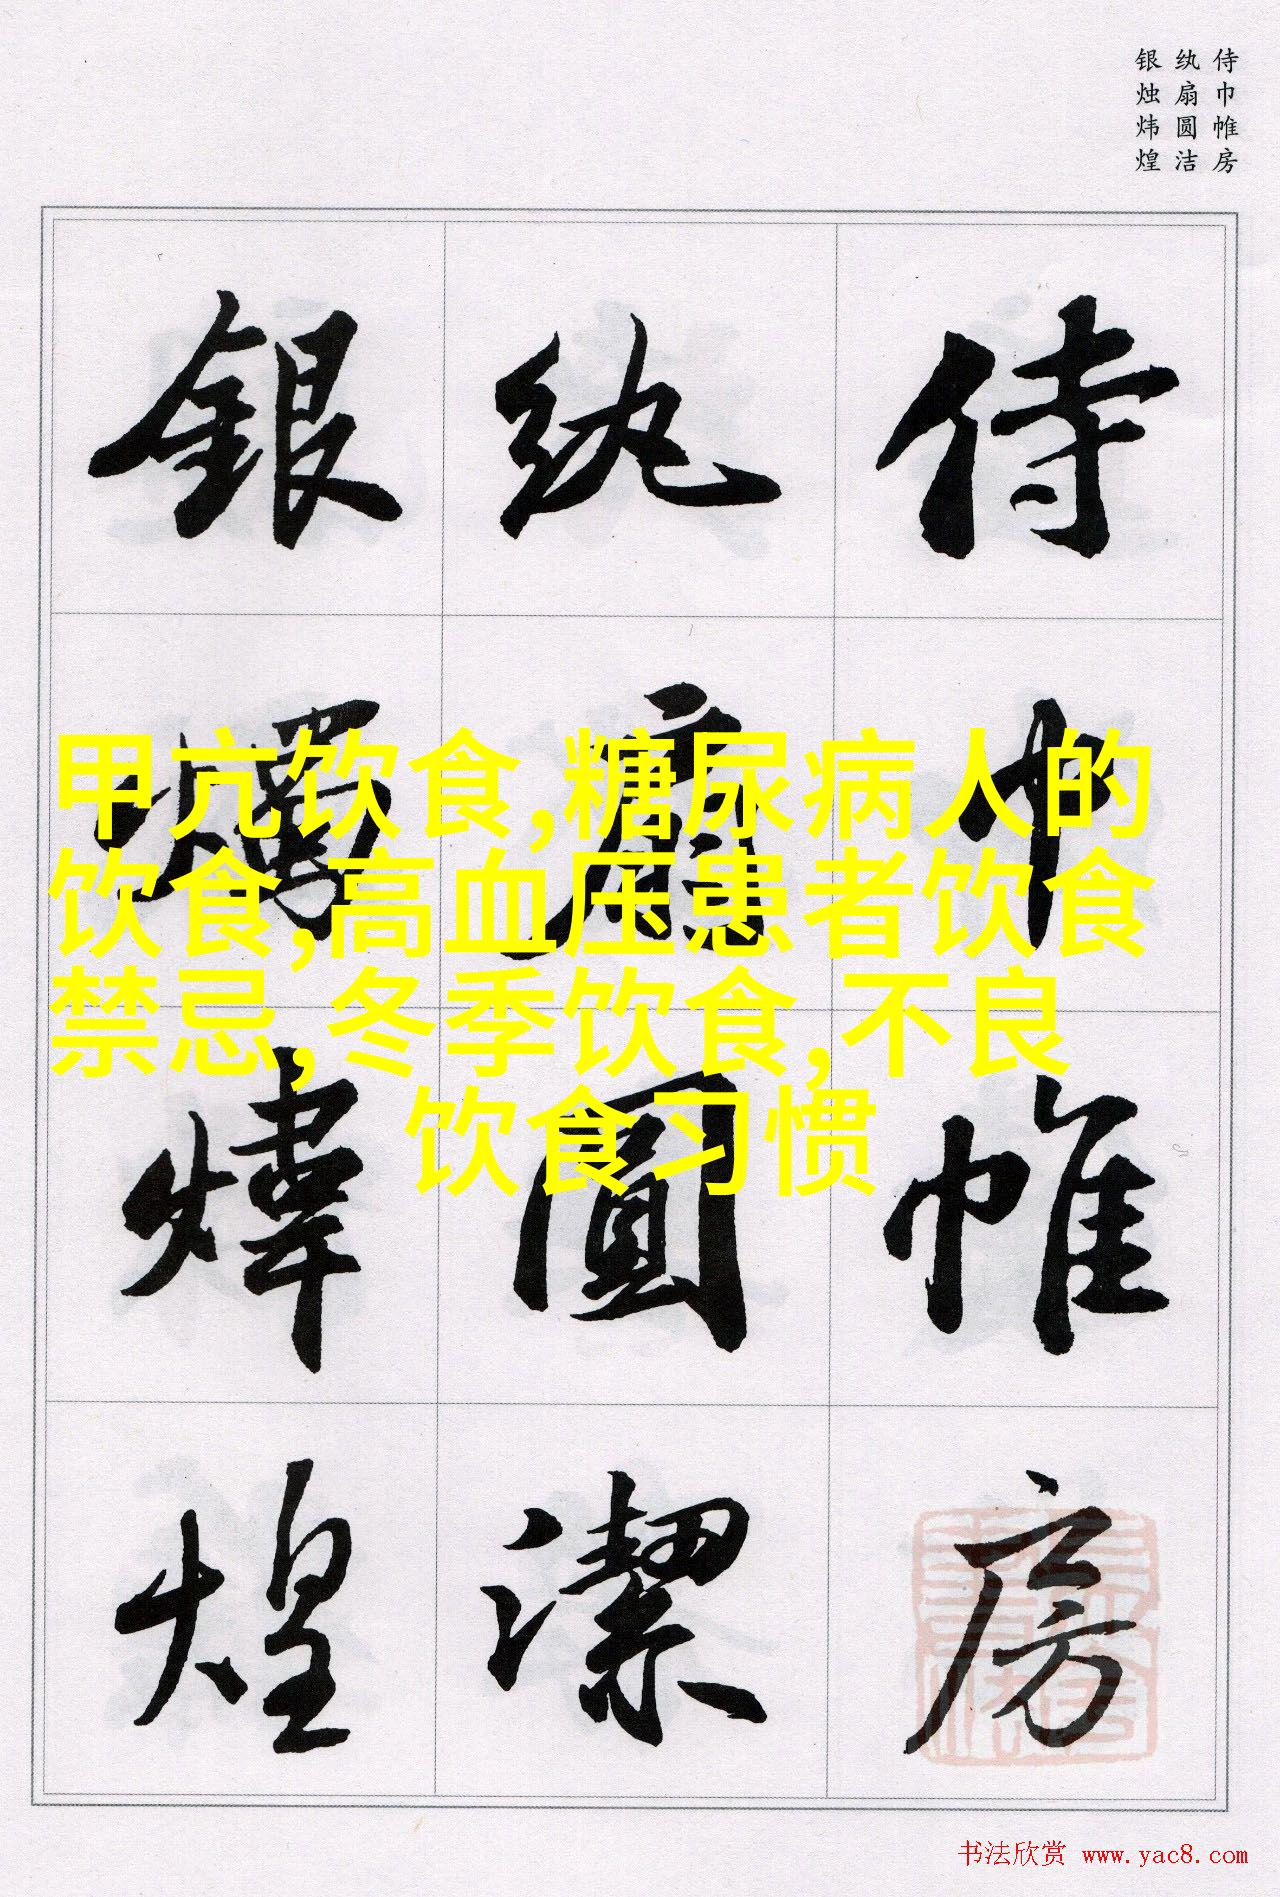 侍巾帷房
纨扇圆洁
银烛炜煌
侍巾帷房
纨扇圓潔
銀燭煒煌
甲亢饮食,糖尿病人的
饮食,高血压患者饮食
禁忌,冬季饮食,不良
饮食习惯
书法欣赏 www.yac8.com